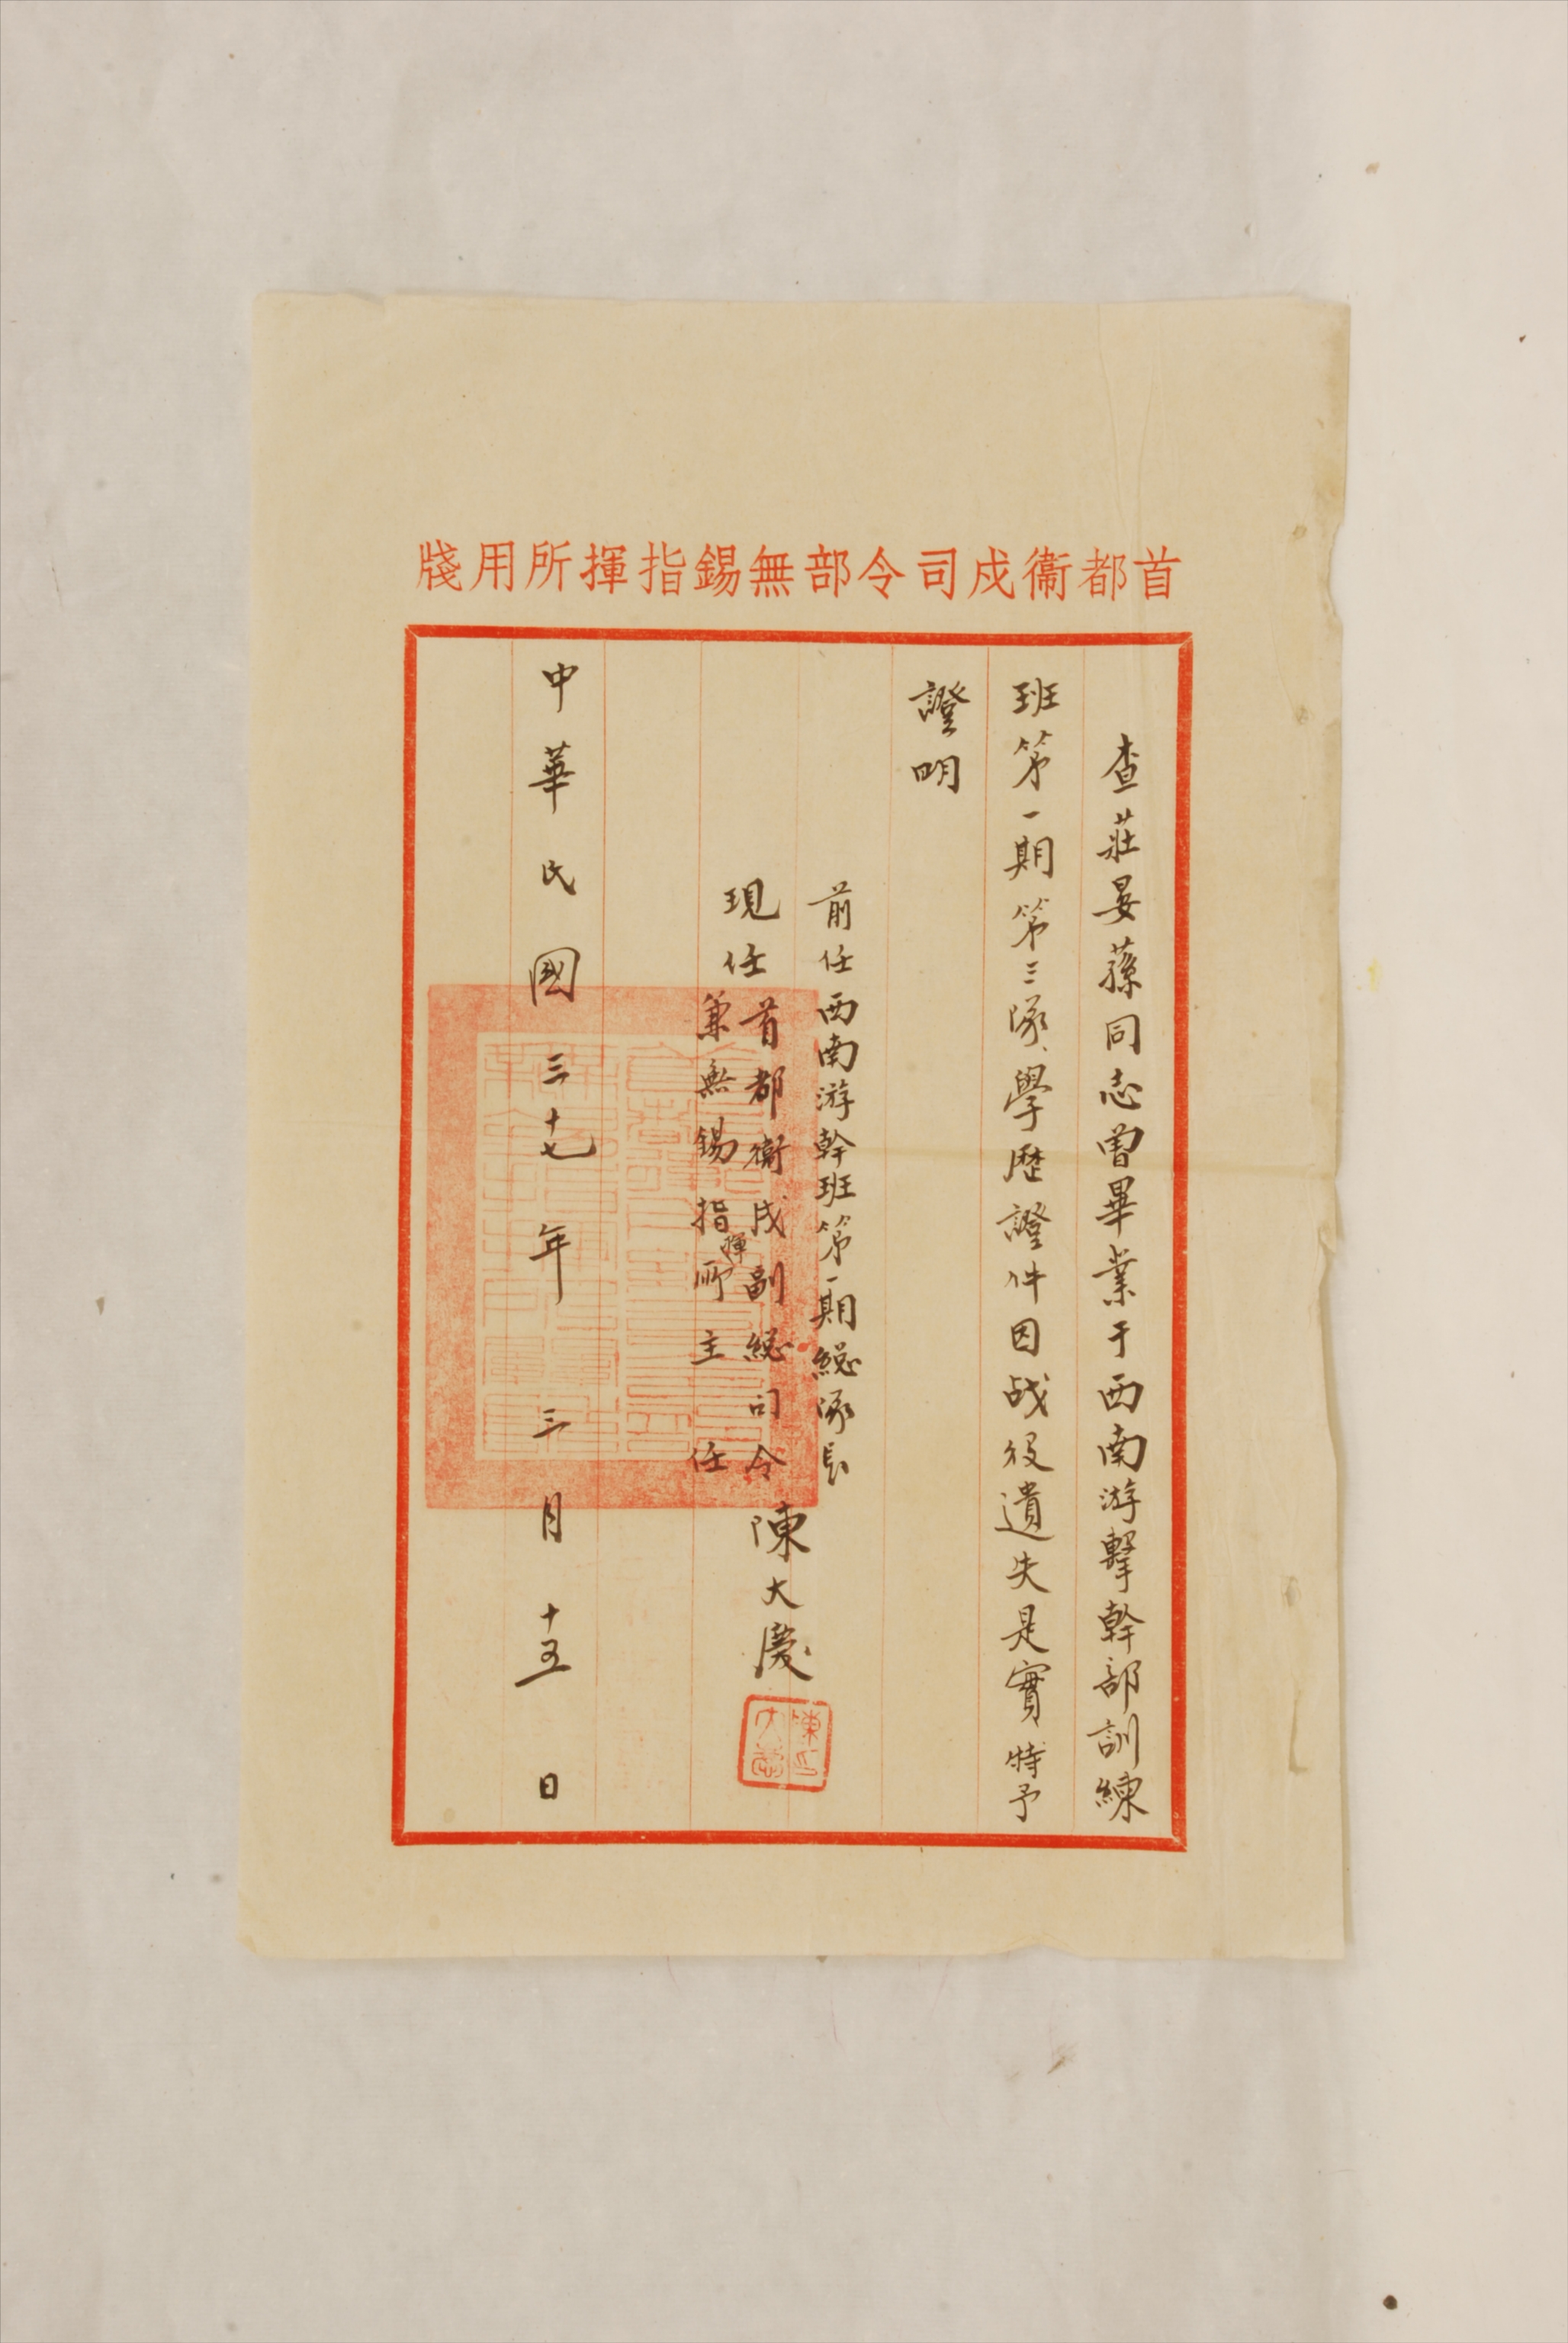 首都衞戍司令部無錫指揮所用牋
查莊晏蓀同志曾畢業于西南游擊幹部訓練
班第一期第三隊、學歷證件因战役遺失是實、特予
證明
前任西南游幹班第一期總隊長
現任首都衞戍副總司令陳大慶
兼無錫指揮所主任
中華民國三十七年三月十五日